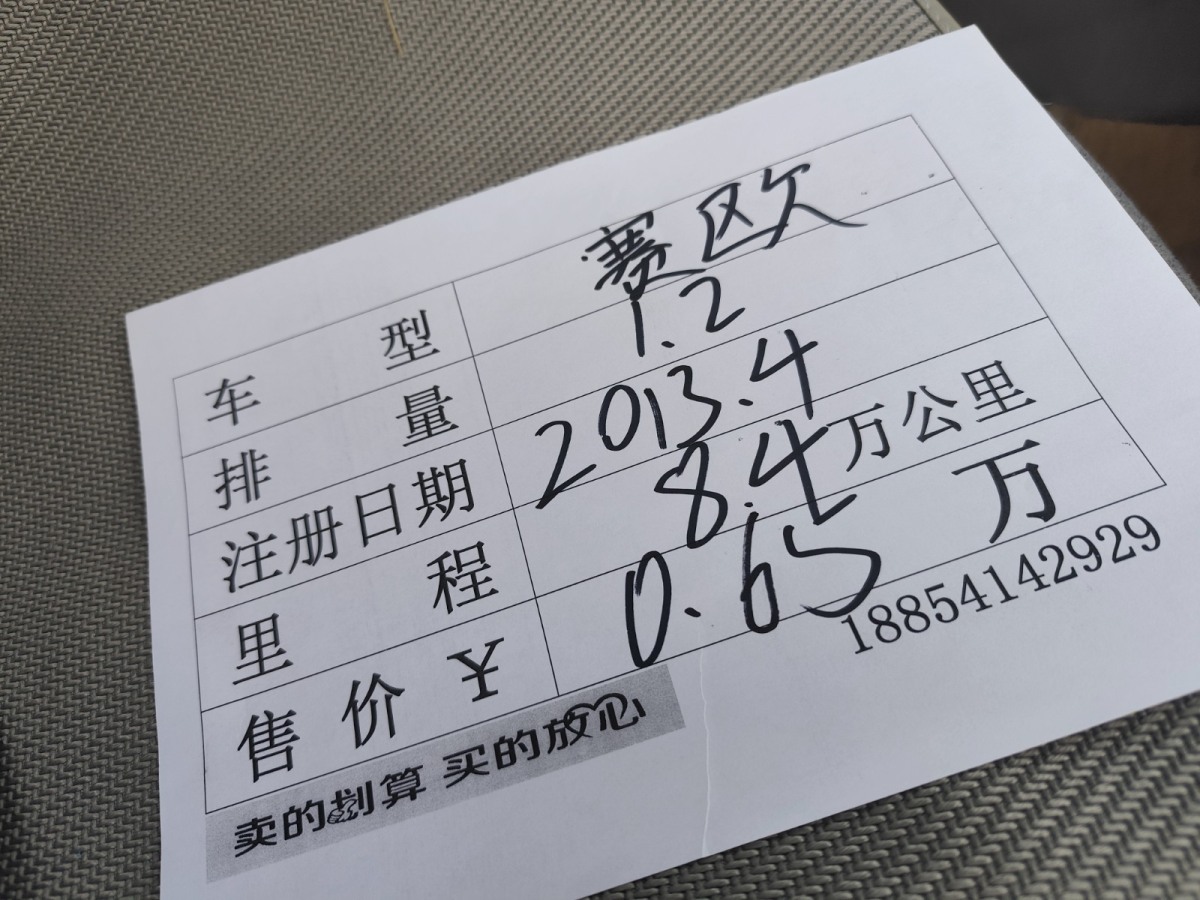 车型 赛欧
排量 1.2
注册日期 2013.4
里程 8.4万公里
售价¥ 0.65万
18854142929
卖的划算 买的放心